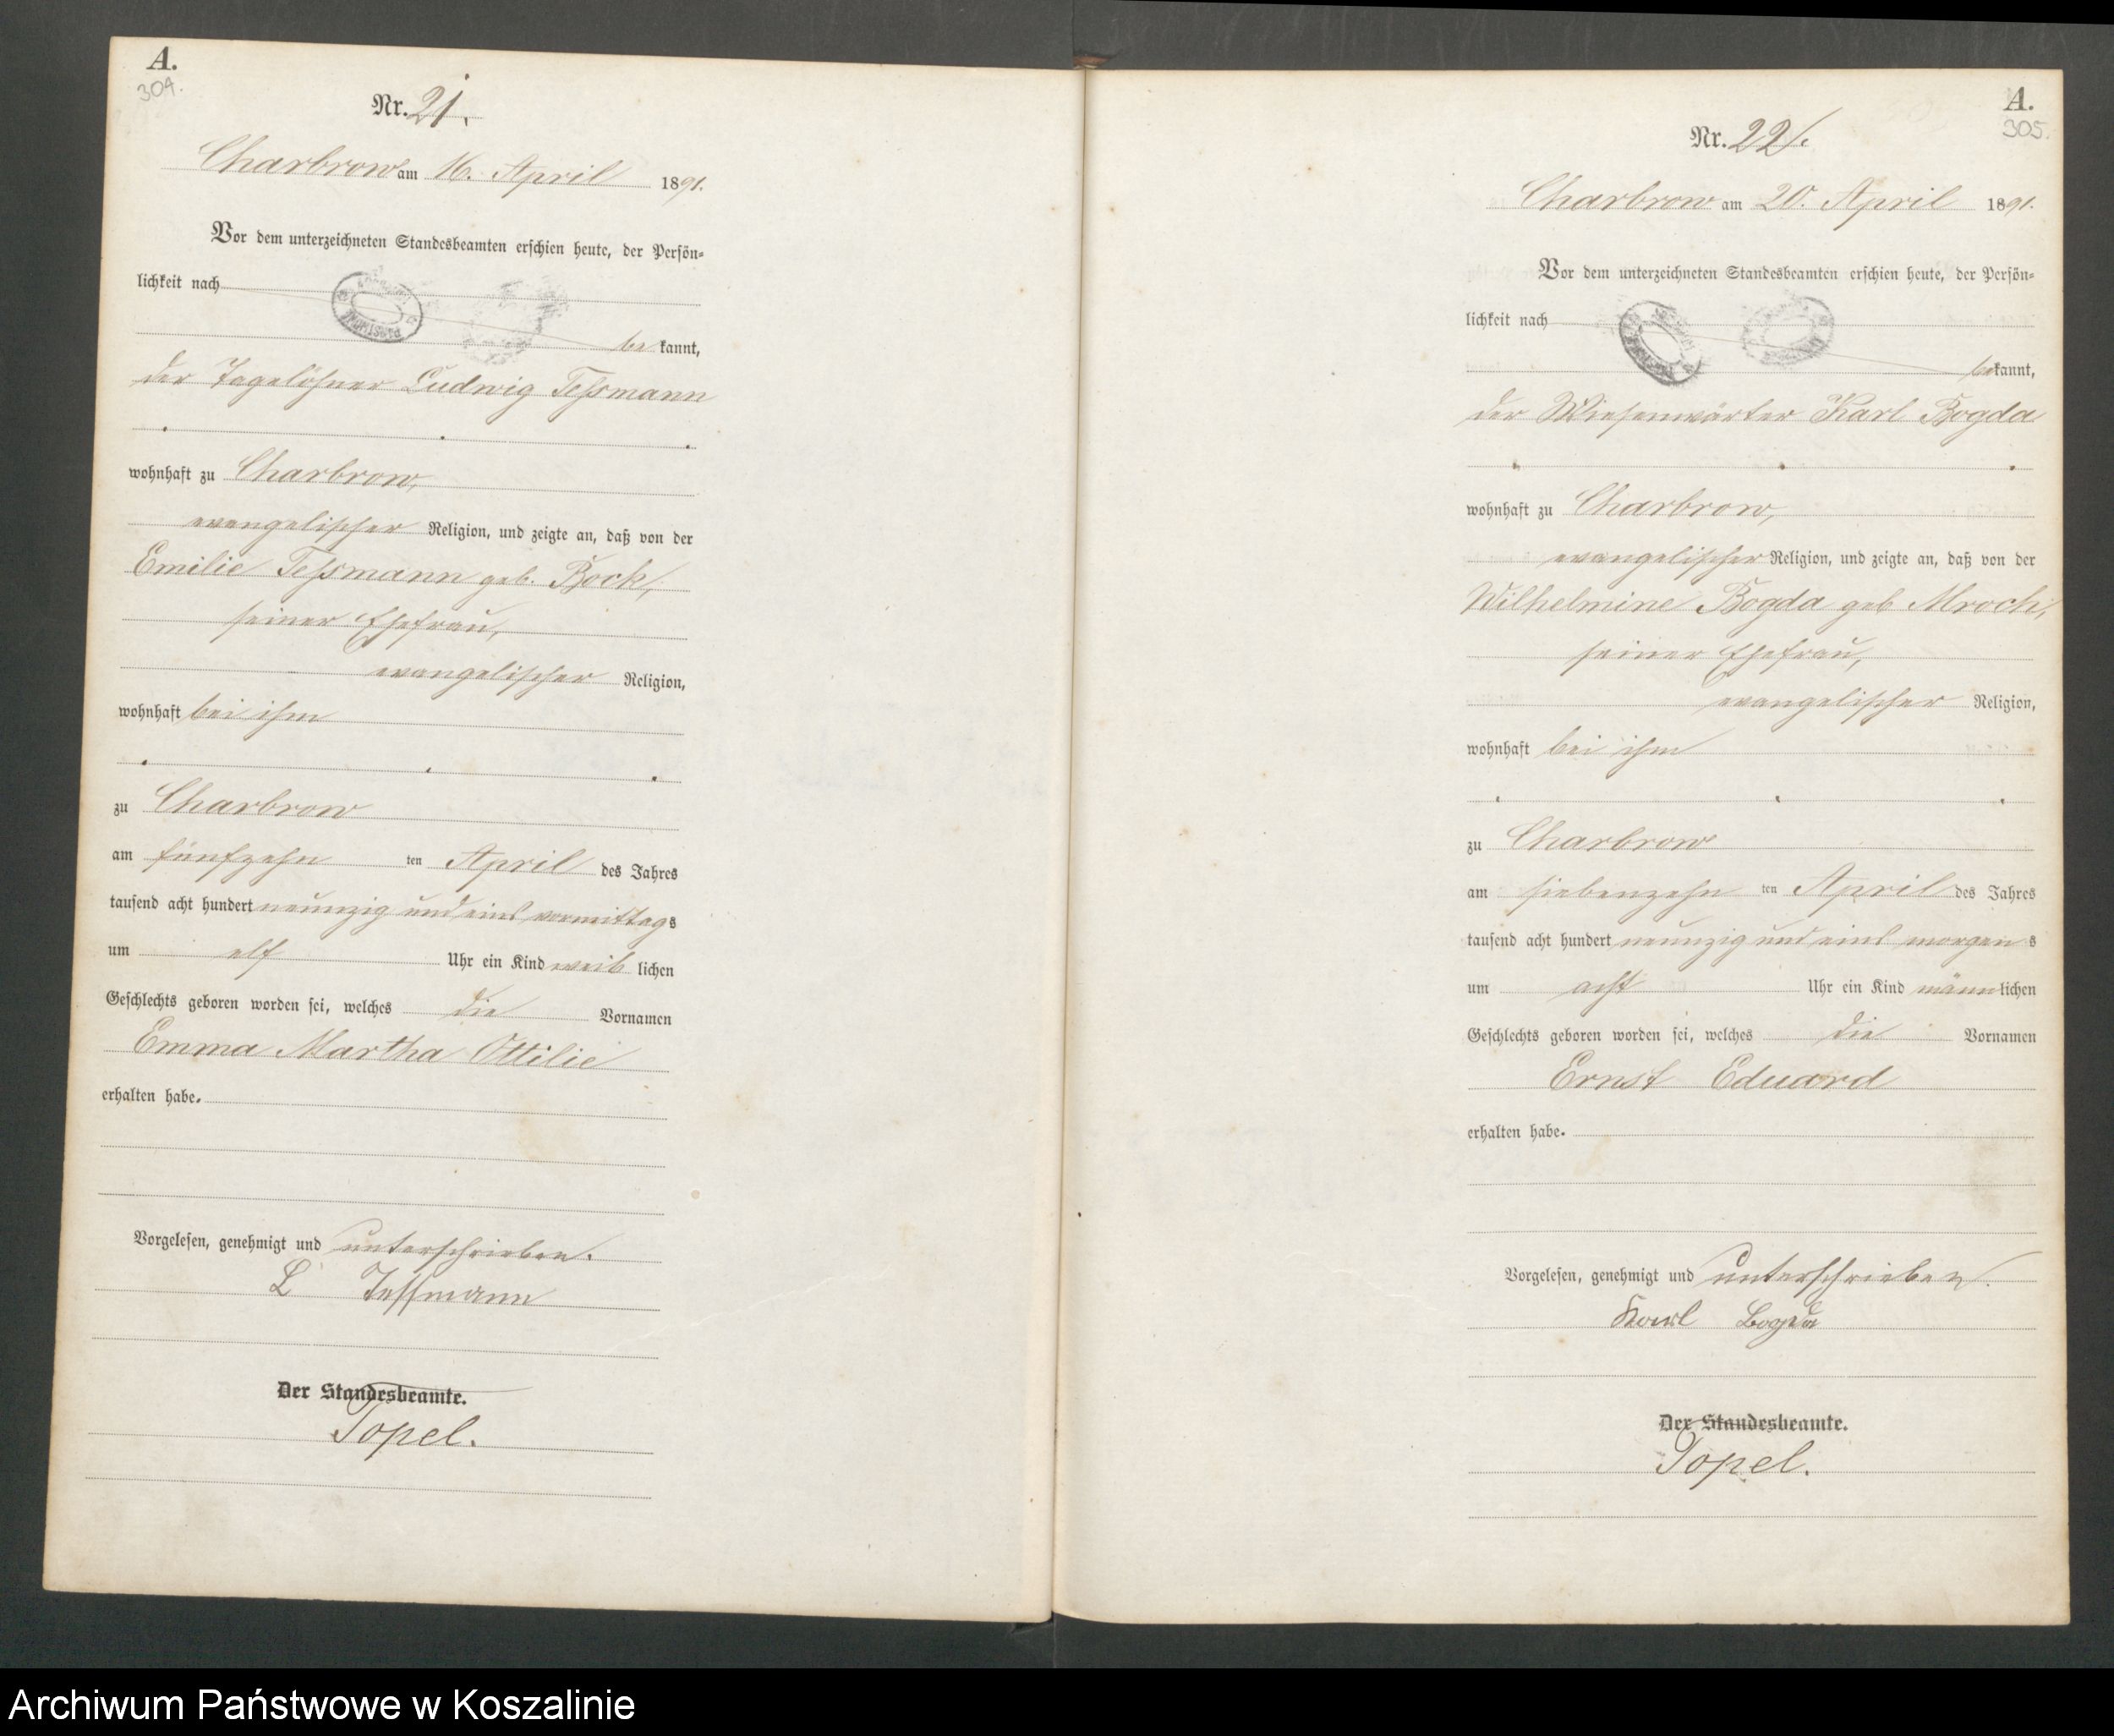 A.
304.
Nr. 21.
Charbrow am 16. April 1891.
Vor dem unterzeichneten Standesbeamten erschien heute, der Persön-
lichkeit nach
be kannt,
der Tagelöhner Ludwig Tessmann
wohnhaft zu Charbrow,
evangelischer Religion, und zeigte an, daß von der
Emilie Tessmann geb. Bock,
seiner Ehefrau,
evangelischer Religion,
wohnhaft bei ihm
zu Charbrow
am fünfzehn ten April des Jahres
tausend acht hundert neunzig und eins vormittags
um elf Uhr ein Kind weib lichen
Geschlechts geboren worden sei, welches die Vornamen
Emma Martha Ottilie
erhalten habe.
Vorgelesen, genehmigt und unterschrieben.
L Tessmann
Der Standesbeamte.
Topel.
A.
305.
Nr. 22.
Charbrow am 20. April 1891.
Vor dem unterzeichneten Standesbeamten erschien heute, der Persön-
lichkeit nach
bekannt,
der Wiesenwärter Karl Bogda
wohnhaft zu Charbrow,
evangelischer Religion, und zeigte an, daß von der
Wilhelmine Bogda geb. Mroch,
seiner Ehefrau,
evangelischer Religion,
wohnhaft bei ihm
zu Charbrow
am siebenzehn ten April des Jahres
tausend acht hundert neunzig und eins morgen s
um acht Uhr ein Kind männlichen
Geschlechts geboren worden sei, welches die Vornamen
Ernst Eduard
erhalten habe.
Vorgelesen, genehmigt und unterschrieben.
Karl Bogda
Der Standesbeamte.
Topel.
Archiwum Państwowe w Koszalinie